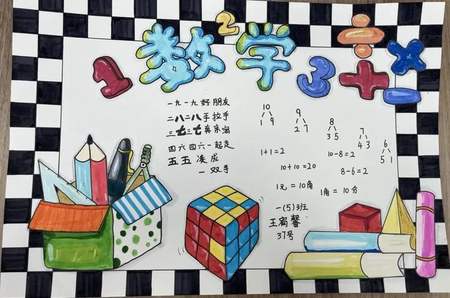 1 数 2 学 3 ÷ + × -
一九一九好朋友
二八二八手拉手
三七三七真亲密
四六四六一起走
五五凑成
一双手
10 9 8 7 6
1 9 2 7 3 5 4 3 5 1
1+1=2 10-8=2
10+10=20 8-6=2
1元=10角 1角=10分
一(5)班
王 馨
37号